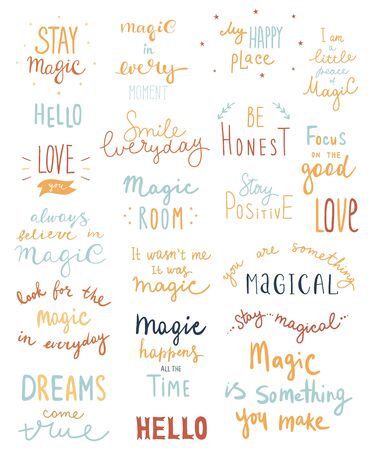 STAY
Magic
HELLO
LOVE
you
always
believe in
magic
Look for the
magic
in everyday
DREAMS
come
true
magic
in
every
MOMENT
Smile
everyday
Magic
ROOM
It wasn't me
It was
magic
Magic
happens
ALL THE
TIME
HELLO
My HAPPY
place
BE
HONEST
Stay
POSITIVE
I am
a
little
peace
of
MAGIC
FOCUS
ON THE
good
LOVE
you are something
MAGICAL
stay magical
Magic
is Something
you make